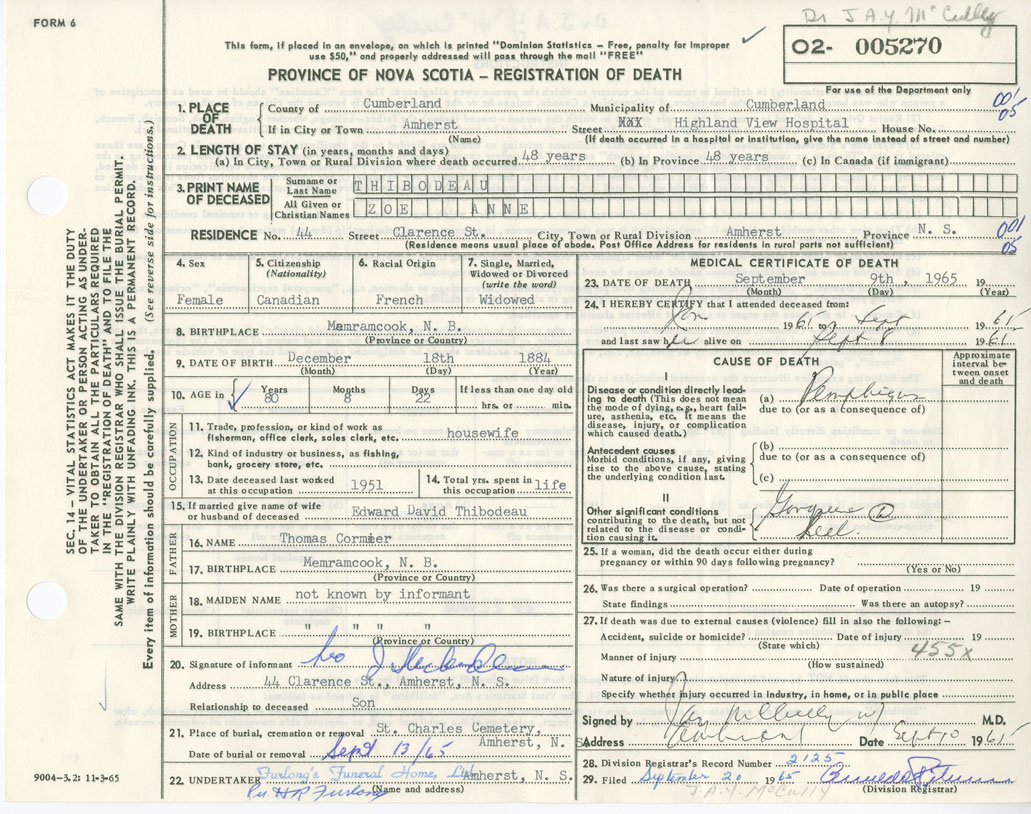 FORM 6
Dr J.A.Y. McCully
This form, if placed in an envelope, on which is printed "Dominion Statistics — Free, penalty for improper
use $50," and properly addressed will pass through the mail "FREE"
O2- 005270
PROVINCE OF NOVA SCOTIA – REGISTRATION OF DEATH
For use of the Department only
001
05
1. PLACE OF DEATH
County of Cumberland Municipality of Cumberland
If in City or Town Amherst Street XXX Highland View Hospital House No.
(Name) (If death occurred in a hospital or institution, give the name instead of street and number)
2. LENGTH OF STAY (in years, months and days)
(a) In City, Town or Rural Division where death occurred 48 years (b) In Province 48 years (c) In Canada (if immigrant)
3. PRINT NAME OF DECEASED
Surname or Last Name THIBODEAU
All Given or Christian Names ZOE ANNE
RESIDENCE No. 44 Street Clarence St. City, Town or Rural Division Amherst Province N. S.
(Residence means usual place of abode. Post Office Address for residents in rural parts not sufficient)
001
05
4. Sex
Female
5. Citizenship (Nationality)
Canadian
6. Racial Origin
French
7. Single, Married, Widowed or Divorced (write the word)
Widowed
8. BIRTHPLACE Memramcook, N. B.
(Province or Country)
9. DATE OF BIRTH December 18th 1884
(Month) (Day) (Year)
10. AGE in Years Months Days If less than one day old
80 8 22 hrs. or min.
OCCUPATION
11. Trade, profession, or kind of work as
fisherman, office clerk, sales clerk, etc. housewife
12. Kind of industry or business, as fishing,
bank, grocery store, etc.
13. Date deceased last worked
at this occupation 1951
14. Total yrs. spent in
this occupation life
15. If married give name of wife
or husband of deceased Edward David Thibodeau
FATHER
16. NAME Thomas Cormier
17. BIRTHPLACE Memramcook, N. B.
(Province or Country)
MOTHER
18. MAIDEN NAME not known by informant
19. BIRTHPLACE " " " "
(Province or Country)
20. Signature of informant
Address 44 Clarence St., Amherst, N. S.
Relationship to deceased Son
21. Place of burial, cremation or removal St. Charles Cemetery,
Amherst, N. S
Date of burial or removal Sept 13/65
22. UNDERTAKER Furlong's Funeral Home, Ltd Amherst, N. S.
Per H R Furlong
(Name and address)
MEDICAL CERTIFICATE OF DEATH
23. DATE OF DEATH September 9th, 1965 19
(Month) (Day) (Year)
24. I HEREBY CERTIFY that I attended deceased from:
19 65 to Sept 19 65
and last saw h alive on Sept 8 19 65
CAUSE OF DEATH
Approximate interval between onset and death
I
Disease or condition directly leading
to death (This does not mean
the mode of dying, e.g., heart failure,
asthenia, etc. It means the
disease, injury, or complication
which caused death.)
(a) Pemphigus
due to (or as a consequence of)
Antecedent causes
Morbid conditions, if any, giving
rise to the above cause, stating
the underlying condition last.
(b)
due to (or as a consequence of)
(c)
II
Other significant conditions
contributing to the death, but not
related to the disease or condition
causing it.
Gangrene
heel.
25. If a woman, did the death occur either during
pregnancy or within 90 days following pregnancy?
(Yes or No)
26. Was there a surgical operation? Date of operation 19
State findings Was there an autopsy?
27. If death was due to external causes (violence) fill in also the following: –
Accident, suicide or homicide? Date of injury 19
(State which)
455x
Manner of injury
(How sustained)
Nature of injury
Specify whether injury occurred in industry, in home, or in public place
Signed by M.D.
Address Amherst Date Sept 10 1965
28. Division Registrar's Record Number 2125
29. Filed September 20 1965
J.A.Y. McCully
(Division Registrar)
SEC. 14 — VITAL STATISTICS ACT MAKES IT THE DUTY
OF THE UNDERTAKER OR PERSON ACTING AS UNDERTAKER
TO OBTAIN ALL THE PARTICULARS REQUIRED
IN THE "REGISTRATION OF DEATH" AND TO FILE THE
SAME WITH THE DIVISION REGISTRAR WHO SHALL ISSUE THE BURIAL PERMIT.
WRITE PLAINLY WITH UNFADING INK. THIS IS A PERMANENT RECORD.
Every item of information should be carefully supplied. (See reverse side for instructions.)
9004-3.2: 11-3-65